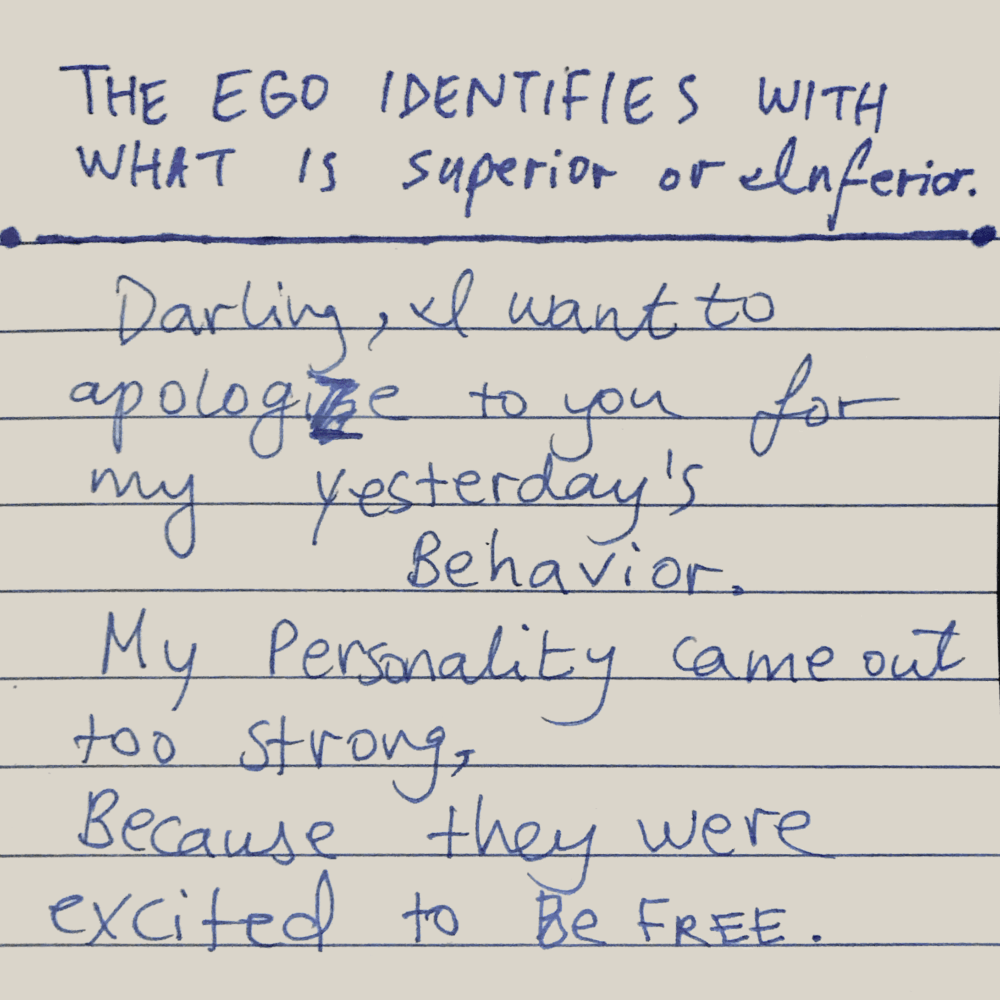 THE EGO IDENTIFIES WITH
WHAT IS superior or Inferior.
Darling, I want to
apologize to you for
my yesterday's
Behavior.
My Personality came out
too strong,
Because they were
excited to Be FREE.